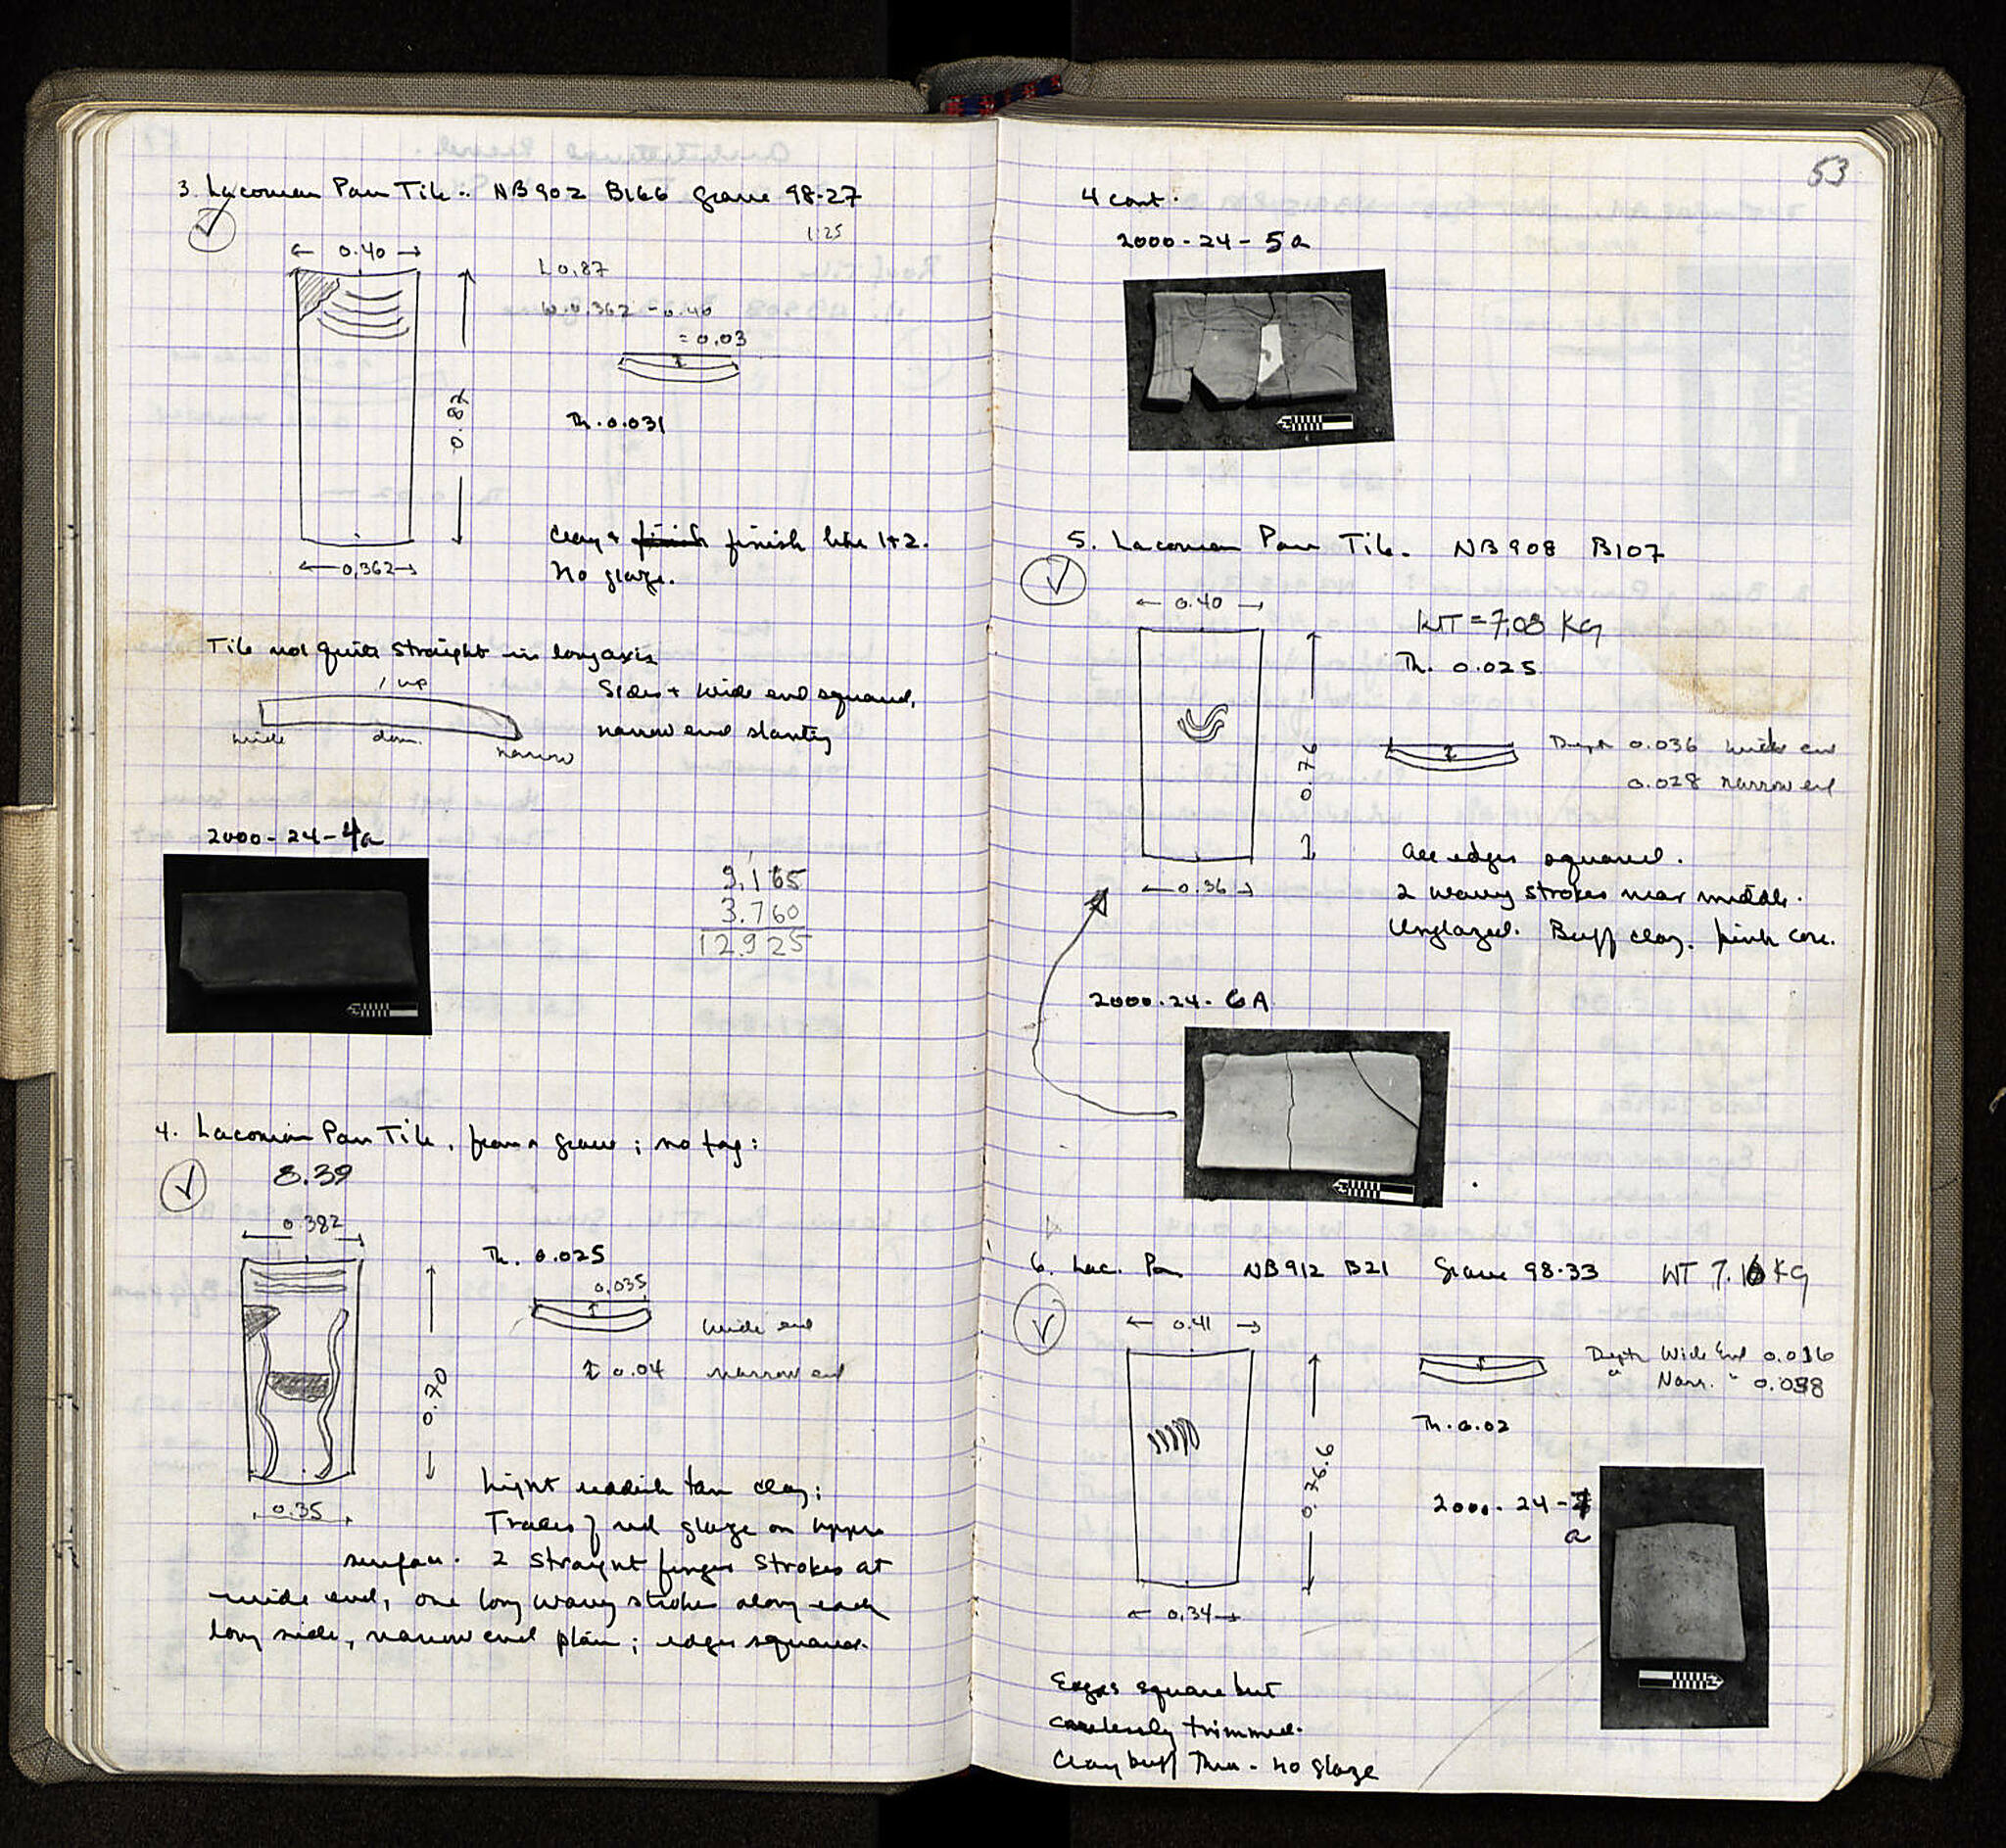 3. Laconian Pan Tile.. NB902 B166 Grave 98-27
1:25
← 0.40 →
L 0.87
W. 0.362 - 0.40
= 0.03
0.87
Th. 0.031
Clay + finish finish like 1+2.
No glaze.
← 0,362 →
Tile not quite straight in long axis
up
Sides + wide end squared,
narrow end slanting
wide
down
narrow
2000-24-4a
9.165
3.760
12.925
4. Laconian Pan Tile, from a grave; no tag:
8.39
0.382
Th. 0.025
0.035
wide end
0.04 narrow end
0.70
0.35
Light reddish tan clay;
Traces of red glaze on upper
surface. 2 straight finger strokes at
wide end, one long wavy stroke along each
long side, narrow end plain; edges squared.
53
4 cont.
2000-24-5a
5. Laconian Pan Tile. NB908 B107
← 0.40 →
WT = 7.08 KG
Th. 0.025
0.76
Depth 0.036 wide end
0.028 narrow end
← 0.36 →
All edges squared.
2 wavy strokes near middle.
Unglazed. Buff clay, pink core.
2000.24-6A
6. Lac. Pan NB912 B21 Grave 98-33 WT 7.16 KG
← 0.41 →
Depth Wide End 0.036
" Narr. " 0.038
Th. 0.02
0.76.6
2000-24-7
a
← 0,34 →
Edges square but
carelessly trimmed.
Clay buff Thru - no glaze